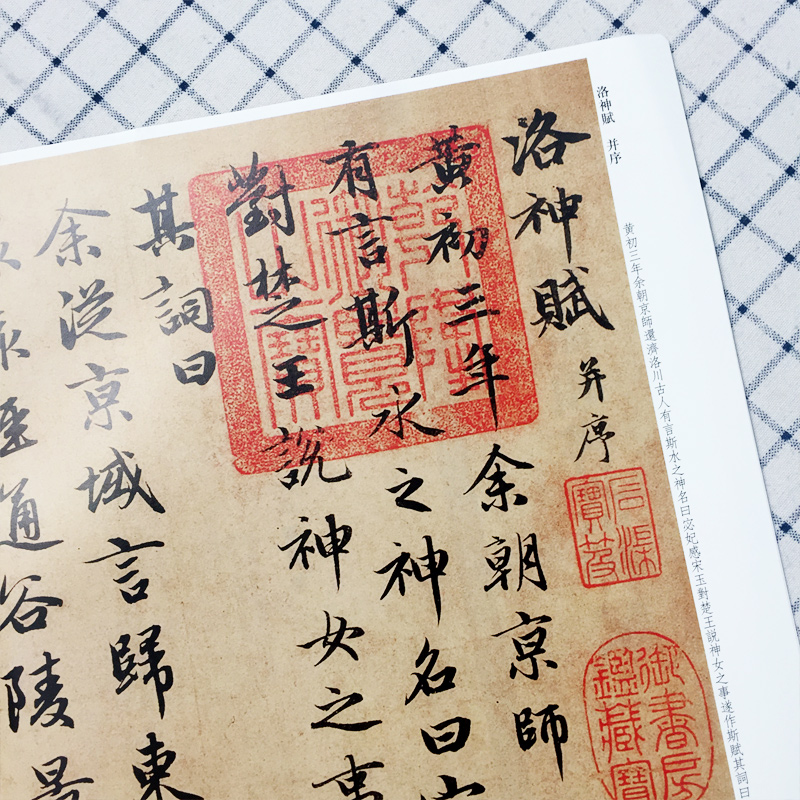 洛神賦 并序
黄初三年余朝京師還濟洛川古人有言斯水之神名曰宓妃感宋玉對楚王説神女之事遂作斯賦其詞曰
洛神賦 并序
石渠寶笈
御書房鑑藏寶
黃初三年余朝京師
有言斯水之神名曰
對楚王說神女之事
其詞曰
余從京域言歸東
通谷陵景